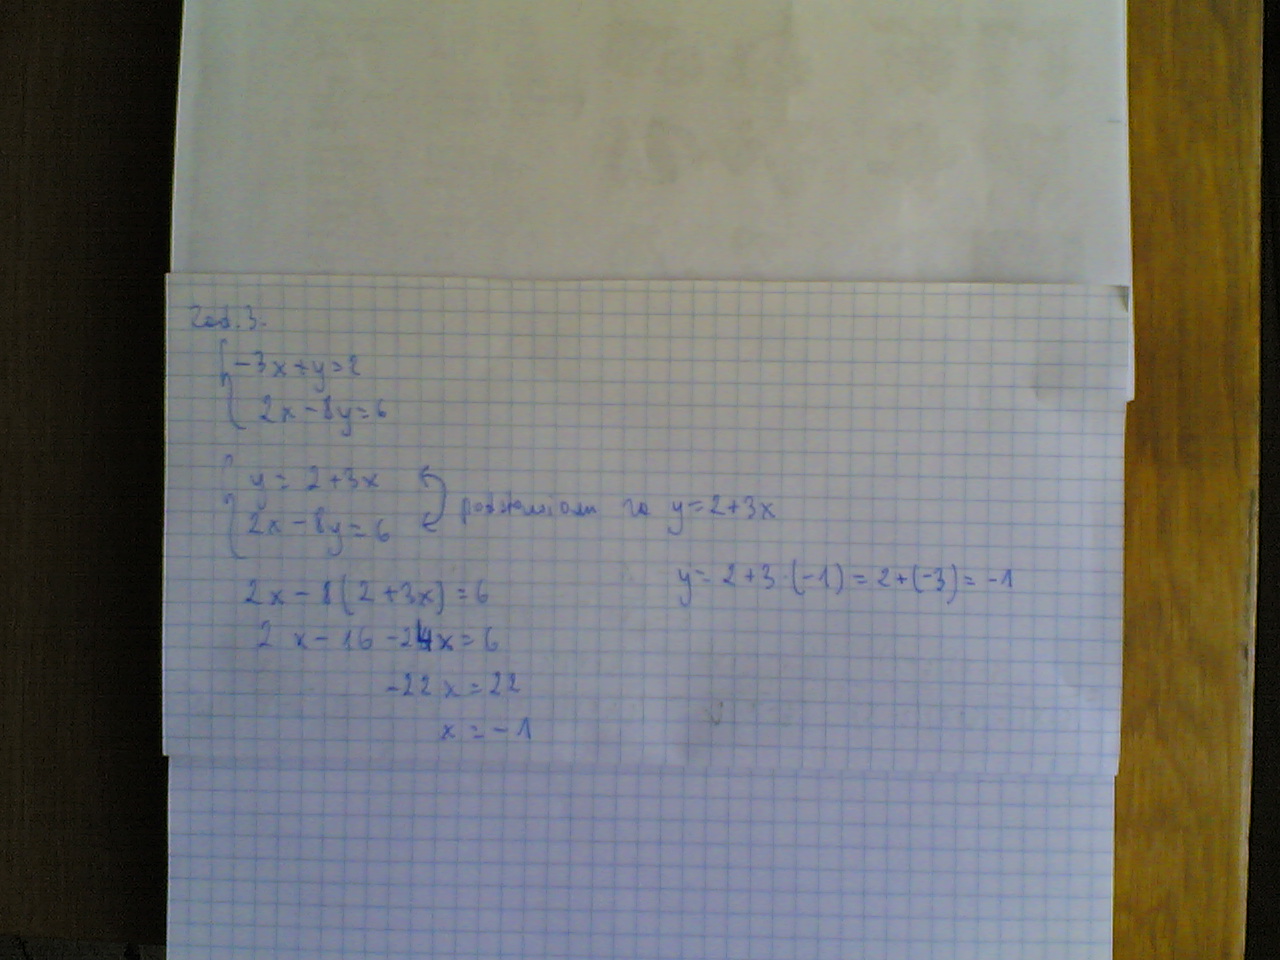 Zad. 3.
-3x+y=2
2x-8y=6
y= 2+3x
2x-8y=6
podstawiam za y=2+3x
2x-8(2+3x)=6
2x-16-24x=6
-22x=22
x=-1
y= 2+3·(-1)=2+(-3)=-1